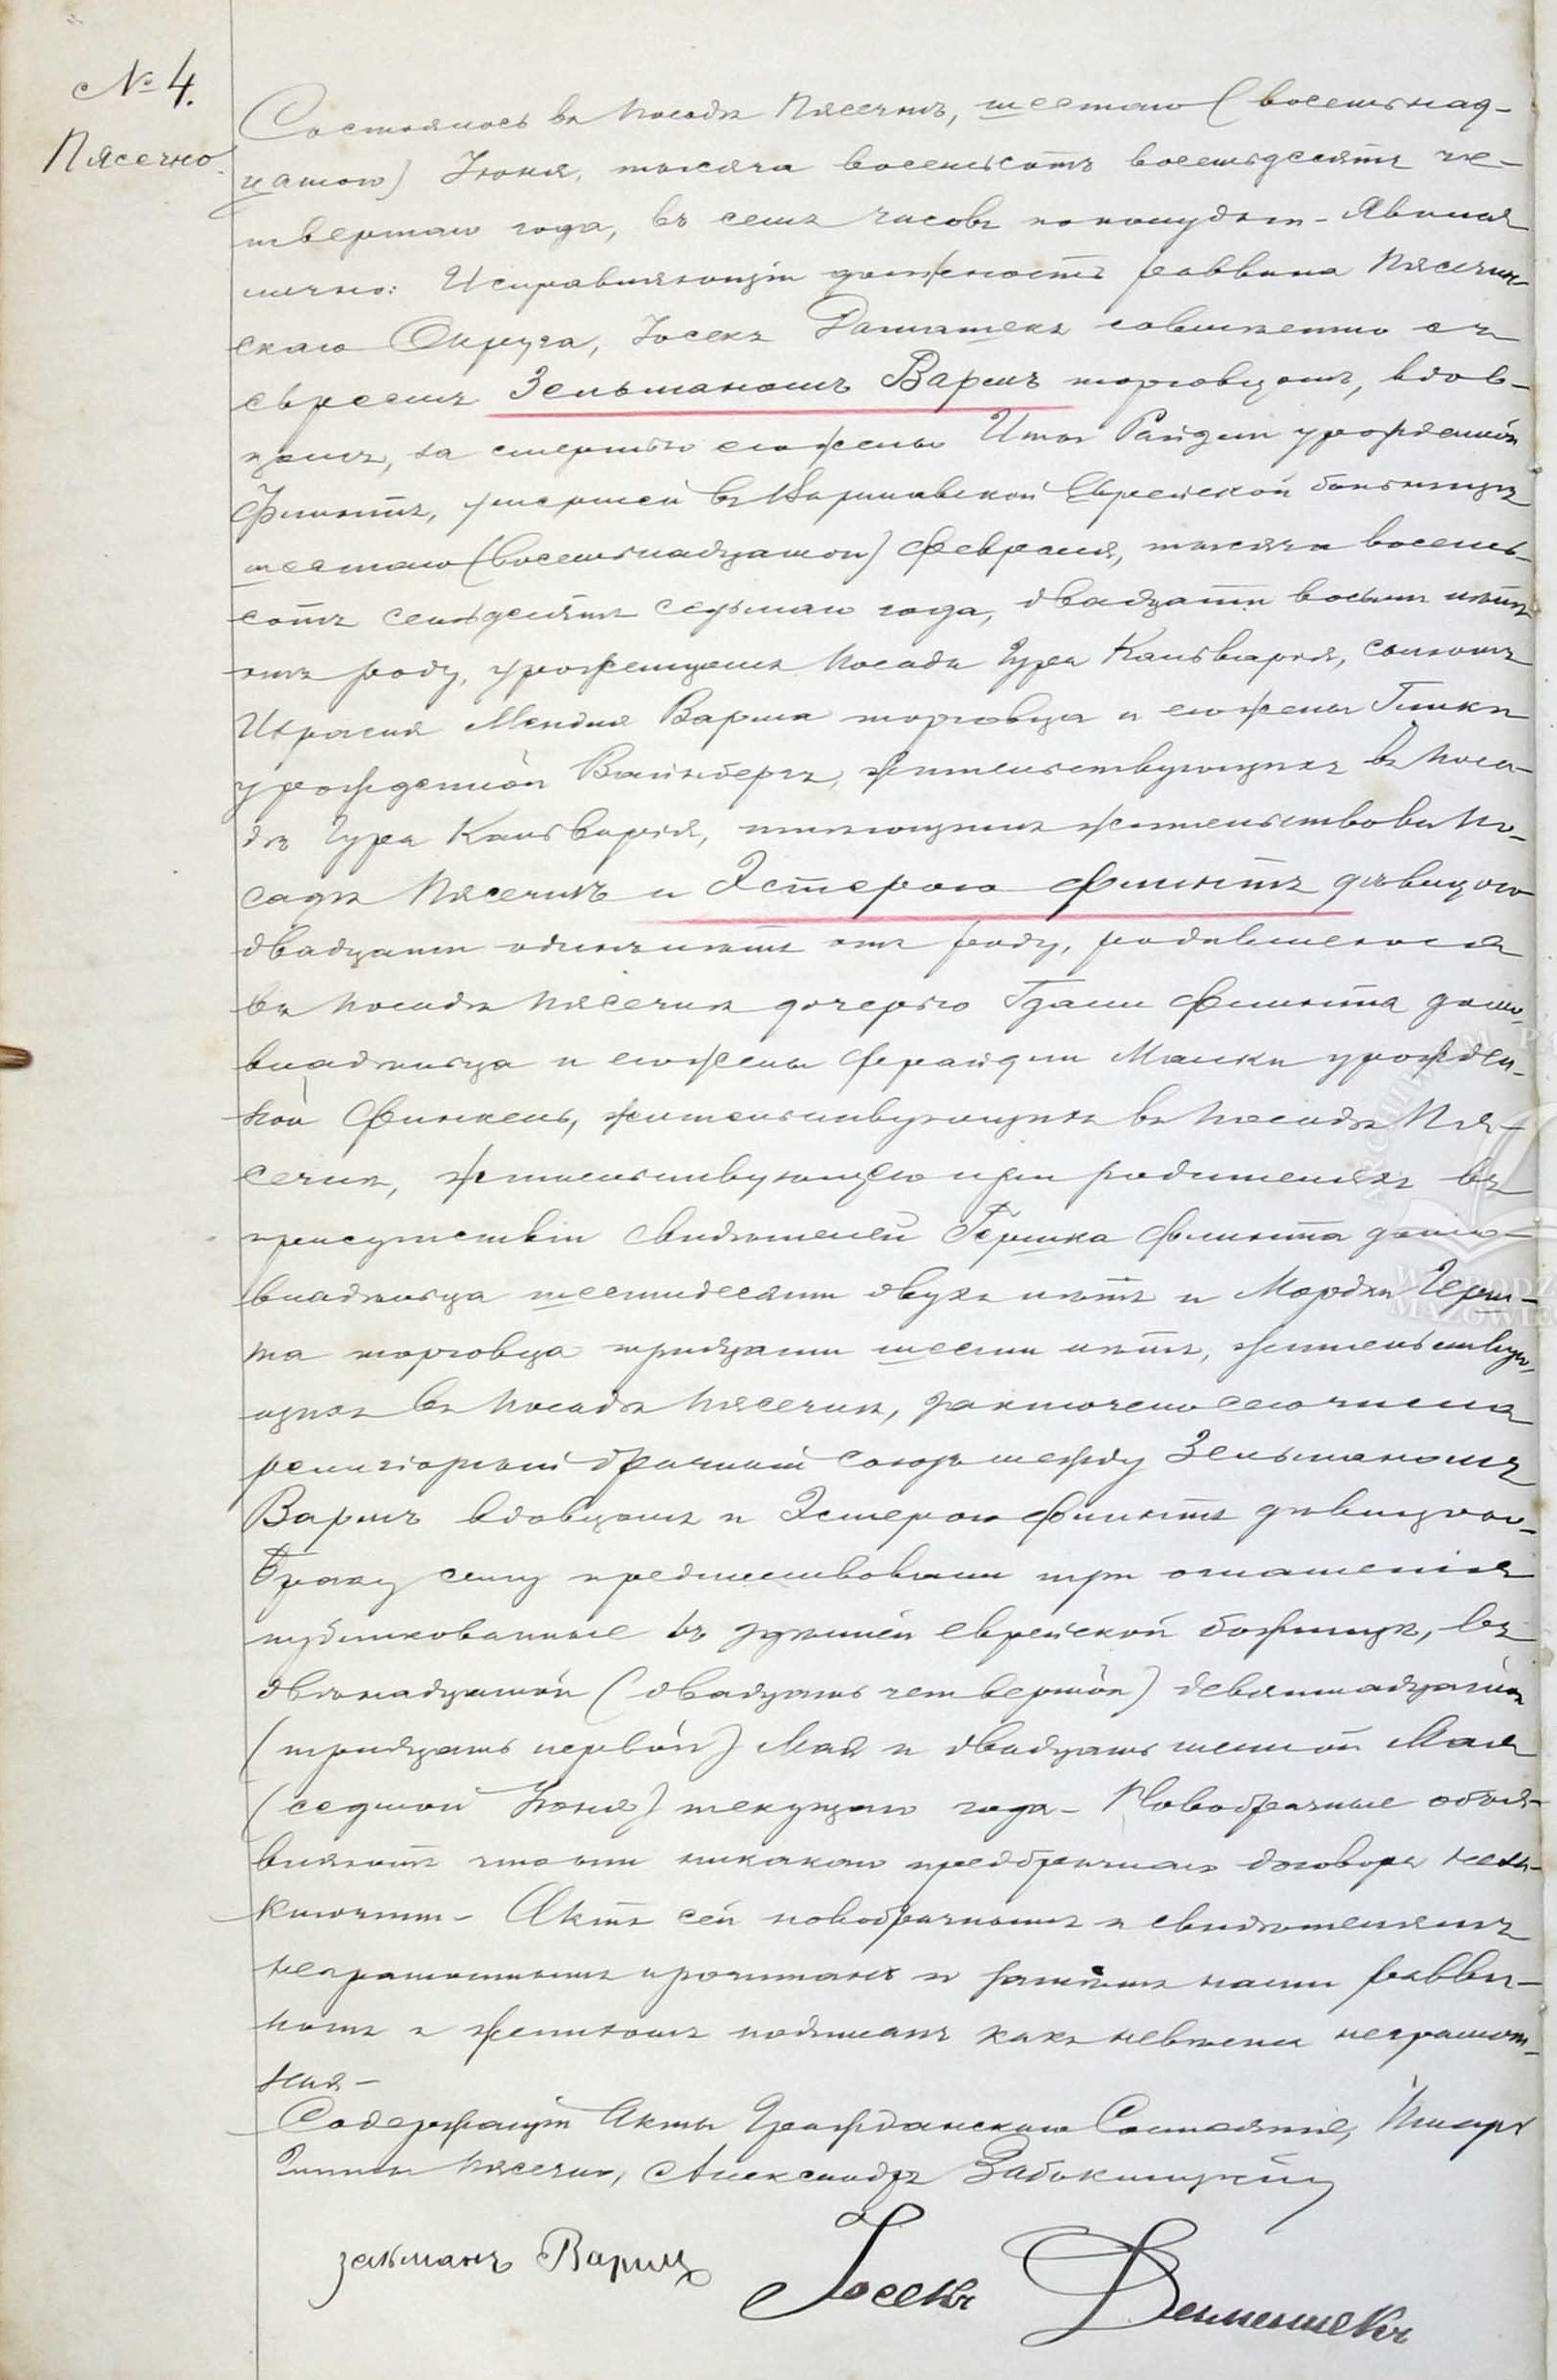 № 4.
Пясечно.
Состоялось въ посадѣ Пясечнѣ, шестаго (восемнад-
цатаго) Іюня, тысяча восемьсотъ восемьдесятъ че-
твертаго года, въ семь часовъ пополудни – Явился
лично: Исправляющій должность раввина Пясечин-
скаго Округа, Іосекъ совмѣстно съ
евреемъ Зельманомъ Варшъ торговцомъ, вдов-
цомъ, за смертью его жены Иты Райдли урожденной
Флинтъ, умершей въ Варшавской Еврейской больницѣ
шестаго (восемнадцатаго) Февраля, тысяча восемь-
сотъ семьдесятъ седьмаго года, двадцати восьми лѣтъ
отъ роду, урожденцемъ посада Гура Кальварія, сыномъ
Израеля Мендля Варша торговца и его жены Глики
урожденной Вайнбергъ, жительствующихъ въ поса-
дѣ Гура Кальварія, жительство въ по-
садѣ Пясечнѣ и Эстерою Флинтъ дѣвицою
двадцати одинъ лѣтъ отъ роду, родившеюся
въ посадѣ Пясечнѣ дочерью Флинта домо-
владѣльца и его жены Фрайдли Малки урожден-
ной Финкель, жительствующихъ въ посадѣ Пя-
сечнѣ, жительствующею при родителяхъ въ
присутствіи свидѣтелей Гершка Флинта домо-
владѣльца шестидесяти двухъ лѣтъ и Мордки Герш-
та торговца тридцати шести лѣтъ, жительствую-
щихъ въ посадѣ Пясечнѣ, заключенъ сего числа
религіозный брачный союзъ между Зельманомъ
Варшъ вдовцомъ и Эстерою Флинтъ дѣвицою –
Браку сему предшествовали три оглашенія
публикованные въ здѣшней еврейской божницѣ, въ
двѣнадцатый (двадцать четвертой) девятнадцатый
(тридцать первой) Мая и двадцать шестой Мая
(седмой Іюня) текущаго года – Новобрачные объя-
вляютъ что они никакаго предбрачнаго договора неза-
ключили – Актъ сей новобрачнымъ и свидѣтелямъ
неграмотнымъ прочитанъ и нами равви-
номъ и женихомъ подписанъ какъ невѣста неграмот-
ная –
Содержащій Акты Гражданскаго Состоянія, Писарь
Гмины Пясечно, Александръ Забоклицкій
зельманъ Варшъ Іосекъ